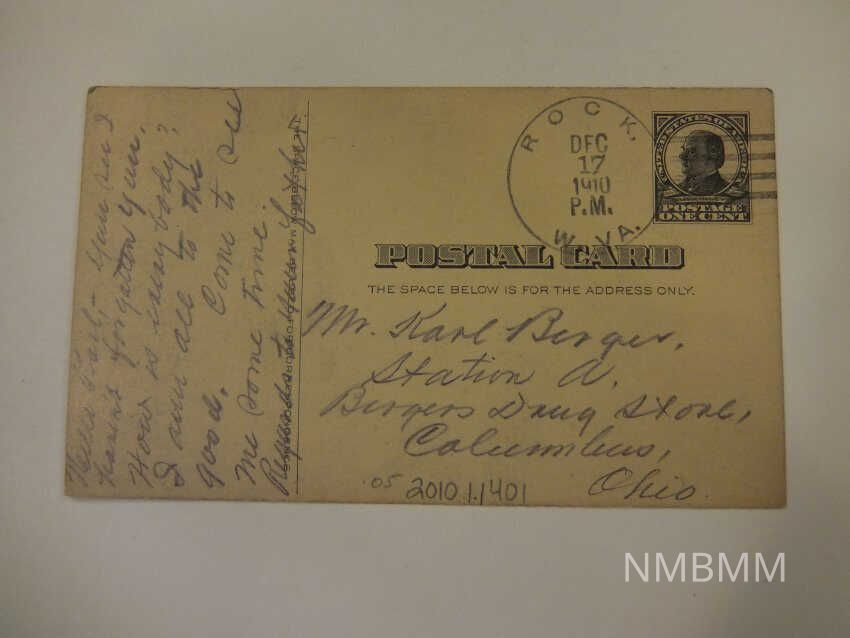 Hello Karl,- You see I
haven't forgotten you.
How is everybody?
I am all to the
good. Come to see
me some time.
Regards to your father.
ROCK,
DEC
17
1910
P.M.
W. VA.
UNITED STATES OF AMERICA
POSTAGE
ONE CENT
POSTAL CARD
THE SPACE BELOW IS FOR THE ADDRESS ONLY.
Mr. Karl Berger,
Station A.
Bergers Drug Store,
Columbus,
Ohio.
05 2010 1.1401
NMBMM